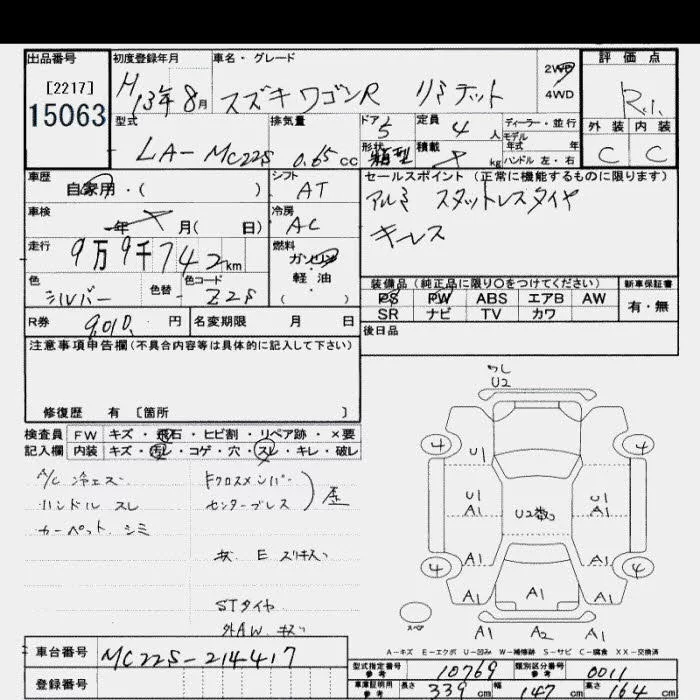 出品番号 初度登録年月 車名・グレード 評価点
[2217]
15063
H13年8月 スズキ ワゴンR リミテッド 2WD
4WD
R.1.
型式 排気量 ドア 5 定員 4人 ディーラー・並行
モデル
年式 年
外装 内装
LA-MC22S 0.65cc 形状 箱型 積載 kg ハンドル 左・右 C C
車歴 シフト セールスポイント (正常に機能するものに限ります)
自家用・( ) AT アルミ スタットレスタイヤ
車検 冷房 キーレス
年 月( 日) AC
走行 燃料
9万9千742km ガソリン
・
軽油
( )
色 色替 色コード
シルバー Z2S
装備品(純正品に限り○をつけてください) 新車保証書
PS PW ABS エアB AW 有・無
SR ナビ TV カワ
R券 9,010. 円 名変期限 月 日 後日品
注意事項申告欄(不具合内容等は具体的に記入して下さい)
修復歴 有 〔箇所 〕
検査員 FW キズ・飛石・ヒビ割・リペア跡・×要
記入欄 内装 キズ・汚レ・コゲ・穴・スレ・キレ・破レ
A/C 冷エズ Fクロスメンバー
ハンドル スレ センターブレス 歪
カーペット シミ
キズ E スリキズ
STタイヤ
外AW キズ
U2
4 U1 4
U1 U1
A1 U2数コ A1
A1 A1
4 4
A1 A1 A1
スペア A1 A2 A1
A-キズ E-エクボ U-凹み W-補修跡 S-サビ C-腐食 XX-交換済
車台番号 MC22S-214417
登録番号
型式指定番号 参考 10769 類別区分番号 参考 0011
車庫証明用 参考 長さ 339cm 幅 147cm 高さ 164cm